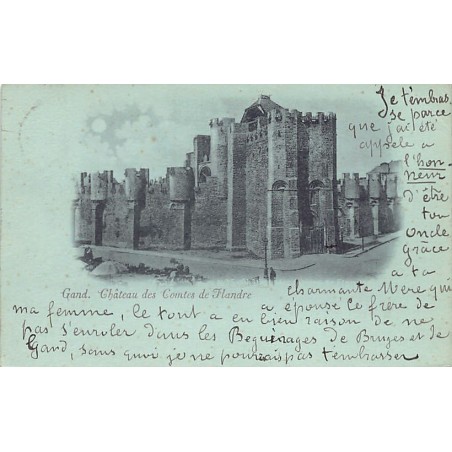 Je t'embras
se parce
que j'ai été
appelé a
l'honneur
d'être
ton
oncle
grâce
a ta
Gand. Château des Comtes de Flandre
charmante Mère qui
ma femme, le tout a a épousé le frère de
en bien raison de ne
pas s'enroler dans les Beguinages de Bruges et de
Gand, sans quoi je ne pourrais pas t'embrasser